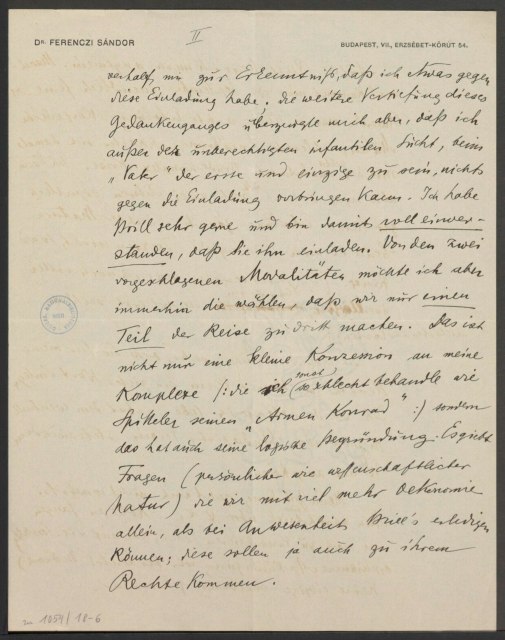 II
DR. FERENCZI SÁNDOR
BUDAPEST, VII., ERZSÉBET-KÖRÚT 54.
verhalf mir zur Erkenntniß, daß ich etwas gegen
diese Einladung habe. Die weitere Vertiefung dieses
Gedankenganges überzeugte mich aber, daß ich
außer der unberechtigten infantilen Sucht, beim
„Vater" der erste und einzige zu sein, nichts
gegen die Einladung vorbringen kann. Ich habe
Brill sehr gerne und bin damit voll einver-
standen, daß Sie ihn einladen. Von den zwei
vorgeschlagenen Modalitäten möchte ich aber
immerhin die wählen, daß wir nur einen
Teil der Reise zu dritt machen. Das ist
nicht nur eine kleine Konzession an meine
Komplexe /: die ich so schlecht behandle wie
Spitteler seinen „Armen Konrad" :/ sondern
das hat auch seine logische Begründung. Es giebt
Fragen (persönlicher wie wissenschaftlicher
Natur) die wir mit viel mehr Oekonomie
allein, als bei Anwesenheit Brill's erledigen
können; diese sollen ja auch zu ihrem
Rechte kommen.
1054/18-6